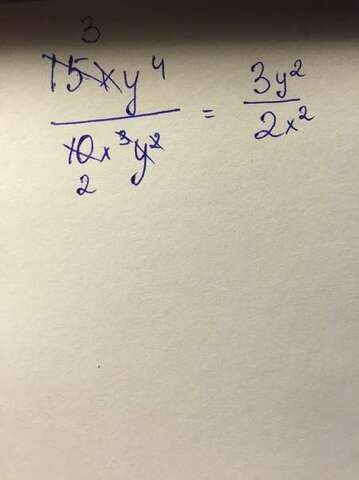 3
15xy⁴
10x³y² = 3y²
2x²
2